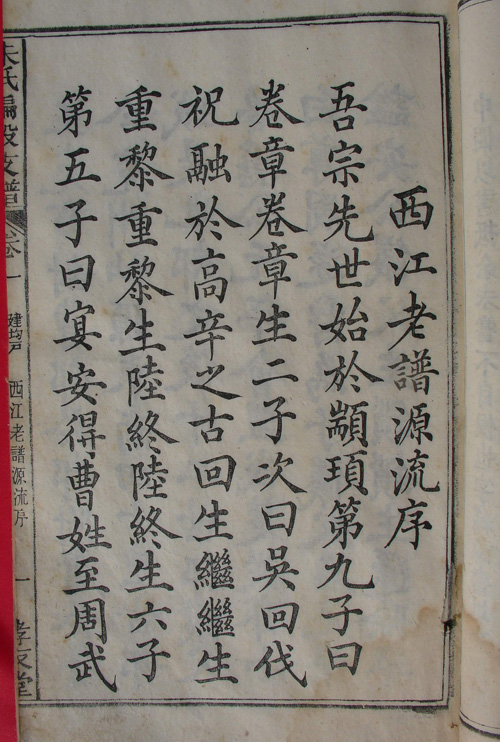 西江老譜源流序
吾宗先世始於顓頊第九子曰
卷章卷章生二子次曰吳回伐
祝融於高辛之古回生繼繼生
重黎重黎生陸終陸終生六子
第五子曰宴安得曹姓至周武
朱氏 支譜
卷 一
西江老譜源流序
一
孝友堂